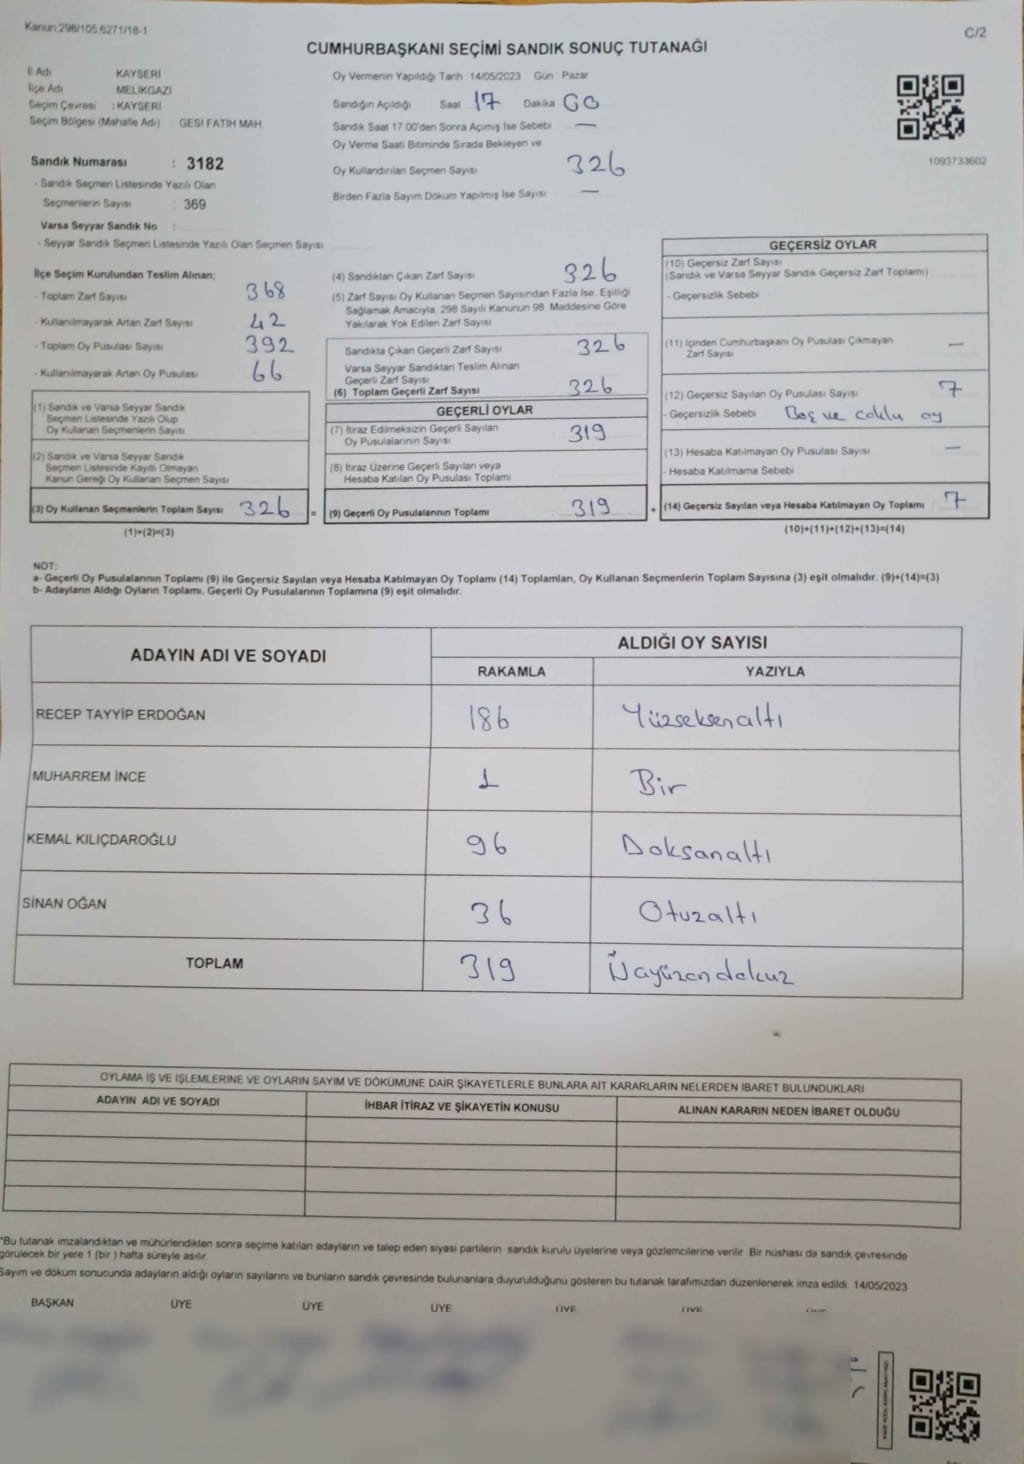 Kanun:298/105,6271/18-1
C/2
CUMHURBAŞKANI SEÇİMİ SANDIK SONUÇ TUTANAĞI
İl Adı KAYSERİ
İlçe Adı MELİKGAZİ
Seçim Çevresi : KAYSERİ
Seçim Bölgesi (Mahalle Adı) GESİ FATİH MAH.
Sandık Numarası : 3182
- Sandık Seçmen Listesinde Yazılı Olan
Seçmenlerin Sayısı : 369
Varsa Seyyar Sandık No :
- Seyyar Sandık Seçmen Listesinde Yazılı Olan Seçmen Sayısı:
Oy Vermenin Yapıldığı Tarih 14/05/2023 Gün Pazar
Sandığın Açıldığı Saat 17 Dakika 00
Sandık Saat 17.00'den Sonra Açımış İse Sebebi —
Oy Verme Saati Bitiminde Sırada Bekleyen ve
Oy Kullandırılan Seçmen Sayısı 326
Birden Fazla Sayım Döküm Yapılmış İse Sayısı —
1093733602
İlçe Seçim Kurulundan Teslim Alınan;
- Toplam Zarf Sayısı 368
- Kullanılmayarak Artan Zarf Sayısı 42
- Toplam Oy Pusulası Sayısı 392
- Kullanılmayarak Artan Oy Pusulası 66
(1) Sandık ve Varsa Seyyar Sandık
Seçmen Listesinde Yazılı Olup
Oy Kullanan Seçmenlerin Sayısı
(2) Sandık ve Varsa Seyyar Sandık
Seçmen Listesinde Kayıtlı Olmayan
Kanun Gereği Oy Kullanan Seçmen Sayısı
(3) Oy Kullanan Seçmenlerin Toplam Sayısı 326 =
(1)+(2)=(3)
(4) Sandıktan Çıkan Zarf Sayısı 326
(5) Zarf Sayısı Oy Kullanan Seçmen Sayısından Fazla İse, Eşitliği
Sağlamak Amacıyla, 298 Sayılı Kanunun 98. Maddesine Göre
Yakılarak Yok Edilen Zarf Sayısı
Sandıkta Çıkan Geçerli Zarf Sayısı 326
Varsa Seyyar Sandıktan Teslim Alınan
Geçerli Zarf Sayısı
(6) Toplam Geçerli Zarf Sayısı 326
GEÇERLİ OYLAR
(7) İtiraz Edilmeksizin Geçerli Sayılan
Oy Pusulalarının Sayısı 319
(8) İtiraz Üzerine Geçerli Sayılan veya
Hesaba Katılan Oy Pusulası Toplamı
(9) Geçerli Oy Pusulalarının Toplamı 319 +
GEÇERSİZ OYLAR
(10) Geçersiz Zarf Sayısı
(Sandık ve Varsa Seyyar Sandık Geçersiz Zarf Toplamı)
- Geçersizlik Sebebi
(11) İçinden Cumhurbaşkanı Oy Pusulası Çıkmayan
Zarf Sayısı —
(12) Geçersiz Sayılan Oy Pusulası Sayısı 7
- Geçersizlik Sebebi Boş ve çoklu oy
(13) Hesaba Katılmayan Oy Pusulası Sayısı —
- Hesaba Katılmama Sebebi
(14) Geçersiz Sayılan veya Hesaba Katılmayan Oy Toplamı 7
(10)+(11)+(12)+(13)=(14)
NOT:
a- Geçerli Oy Pusulalarının Toplamı (9) ile Geçersiz Sayılan veya Hesaba Katılmayan Oy Toplamı (14) Toplamları, Oy Kullanan Seçmenlerin Toplam Sayısına (3) eşit olmalıdır. (9)+(14)=(3)
b- Adayların Aldığı Oyların Toplamı, Geçerli Oy Pusulalarının Toplamına (9) eşit olmalıdır.
ADAYIN ADI VE SOYADI
ALDIĞI OY SAYISI
RAKAMLA YAZIYLA
RECEP TAYYİP ERDOĞAN 186 Yüzseksenaltı
MUHARREM İNCE 1 Bir
KEMAL KILIÇDAROĞLU 96 Doksanaltı
SİNAN OĞAN 36 Otuzaltı
TOPLAM 319 Üçyüzondokuz
OYLAMA İŞ VE İŞLEMLERİNE VE OYLARIN SAYIM VE DÖKÜMÜNE DAİR ŞİKAYETLERLE BUNLARA AİT KARARLARIN NELERDEN İBARET BULUNDUKLARI
ADAYIN ADI VE SOYADI İHBAR İTİRAZ VE ŞİKAYETİN KONUSU ALINAN KARARIN NEDEN İBARET OLDUĞU
*Bu tutanak imzalandıktan ve mühürlendikten sonra seçime katılan adayların ve talep eden siyasi partilerin sandık kurulu üyelerine veya gözlemcilerine verilir. Bir nüshası da sandık çevresinde
görülecek bir yere 1 (bir) hafta süreyle asılır.
Sayım ve döküm sonucunda adayların aldığı oyların sayılarını ve bunların sandık çevresinde bulunanlara duyurulduğunu gösteren bu tutanak tarafımızdan düzenlenerek imza edildi. 14/05/2023
BAŞKAN ÜYE ÜYE ÜYE ÜYE ÜYE ÜYE